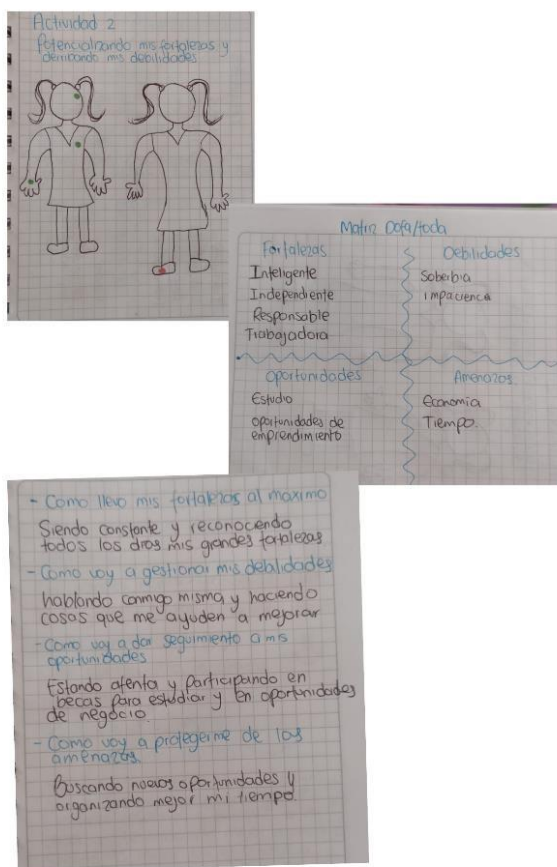 Actividad 2
Potencializando mis fortalezas y
derribando mis debilidades
Matriz Dofa/foda
Fortalezas
Inteligente
Independiente
Responsable
Trabajadora
Debilidades
Soberbia
impaciencia
Oportunidades
Estudio
oportunidades de
emprendimiento
Amenazas
Economia
Tiempo.
- Como llevo mis fortalezas al maximo
Siendo constante y reconociendo
todos los dias mis grandes fortalezas
- Como voy a gestionar mis debilidades
hablando conmigo misma, y haciendo
cosas que me ayuden a mejorar
- Como voy a dar seguimiento a mis
oportunidades
Estando atenta y participando en
becas para estudiar y en oportunidades
de negocio.
- Como voy a protegerme de las
amenazas.
Buscando nuevas oportunidades y
organizando mejor mi tiempo.